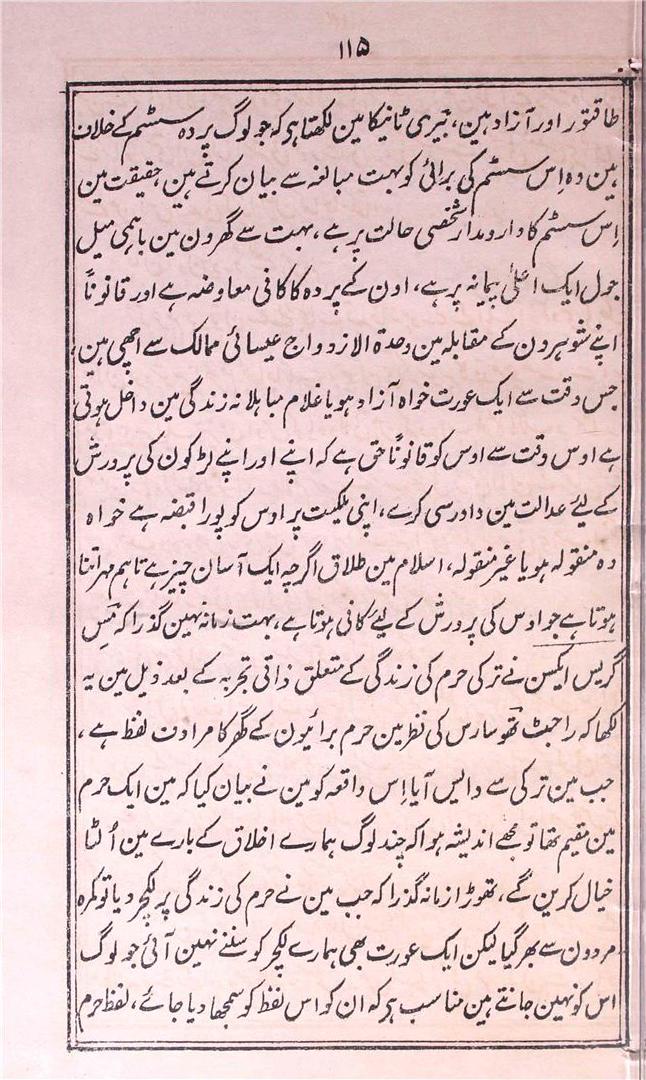 ۱۱۵
طاقتور اور آزاد ہین، بیری ٹانیکا مین لکھتا ہر کہ جو لوگ پردہ سسٹم کے خلاف
ہین وہ اِس سسٹم کی برائی کو بہت مبالغہ سے بیان کرتے ہین، حقیقت مین
اِس سسٹم کا دارومدار شخصی حالت پر ہے، بہت سے گھرون مین باہمی میل
جول ایک اعلیٰ پیمانہ پر ہے، اون کے پردہ کا کافی معاوضہ ہے اور قانوناً
اپنے شوہرون کے مقابلہ مین وحدۃ الازدواج عیسائی ممالک سے اچھی ہین،
جس وقت سے ایک عورت خواہ آزاد ہو یا غلام متاہلانہ زندگی مین داخل ہوتی
ہے اوس وقت سے اوس کو قانوناً حق ہے کہ اپنے اور اپنے لڑکون کی پرورش
کے لیئے عدالت مین دادرسی کرے، اپنی ملکیت پر اوس کو پورا قبضہ ہے خواہ
وہ منقولہ ہو یا غیر منقولہ، اسلام مین طلاق اگرچہ ایک آسان چیز ہے تاہم مہر اتنا
ہوتا ہے جو اوس کی پرورش کے لیئے کافی ہوتا ہے، بہت زمانہ نہین گذرا کہ مَس
گریس ایکسن نے ترکی حرم کی زندگی کے متعلق ذاتی تجربہ کے بعد ذیل مین یہ
لکھا کہ راحبٹ تھوسارس کی نظر مین حرم برائیون کے گھر کا مرادف لفظ ہے،
جب مین ترکی سے واپس آیا اِس واقعہ کو مین نے بیان کیا کہ مین ایک حرم
مین مقیم تھا تو مجھے اندیشہ ہوا کہ چند لوگ ہمارے اخلاق کے بارے مین اُلٹا
خیال کرین گے، تھوڑا زمانہ گذرا کہ جب مین نے حرم کی زندگی پر لکچر دیا تو کمرہ
مردون سے بھر گیا لیکن ایک عورت بھی ہمارے لکچر کو سننے نہین آئی جو لوگ
اس کو نہین جانتے ہین مناسب ہر کہ ان کو اس لفظ کو سمجھا دیا جائے، لفظ حرم